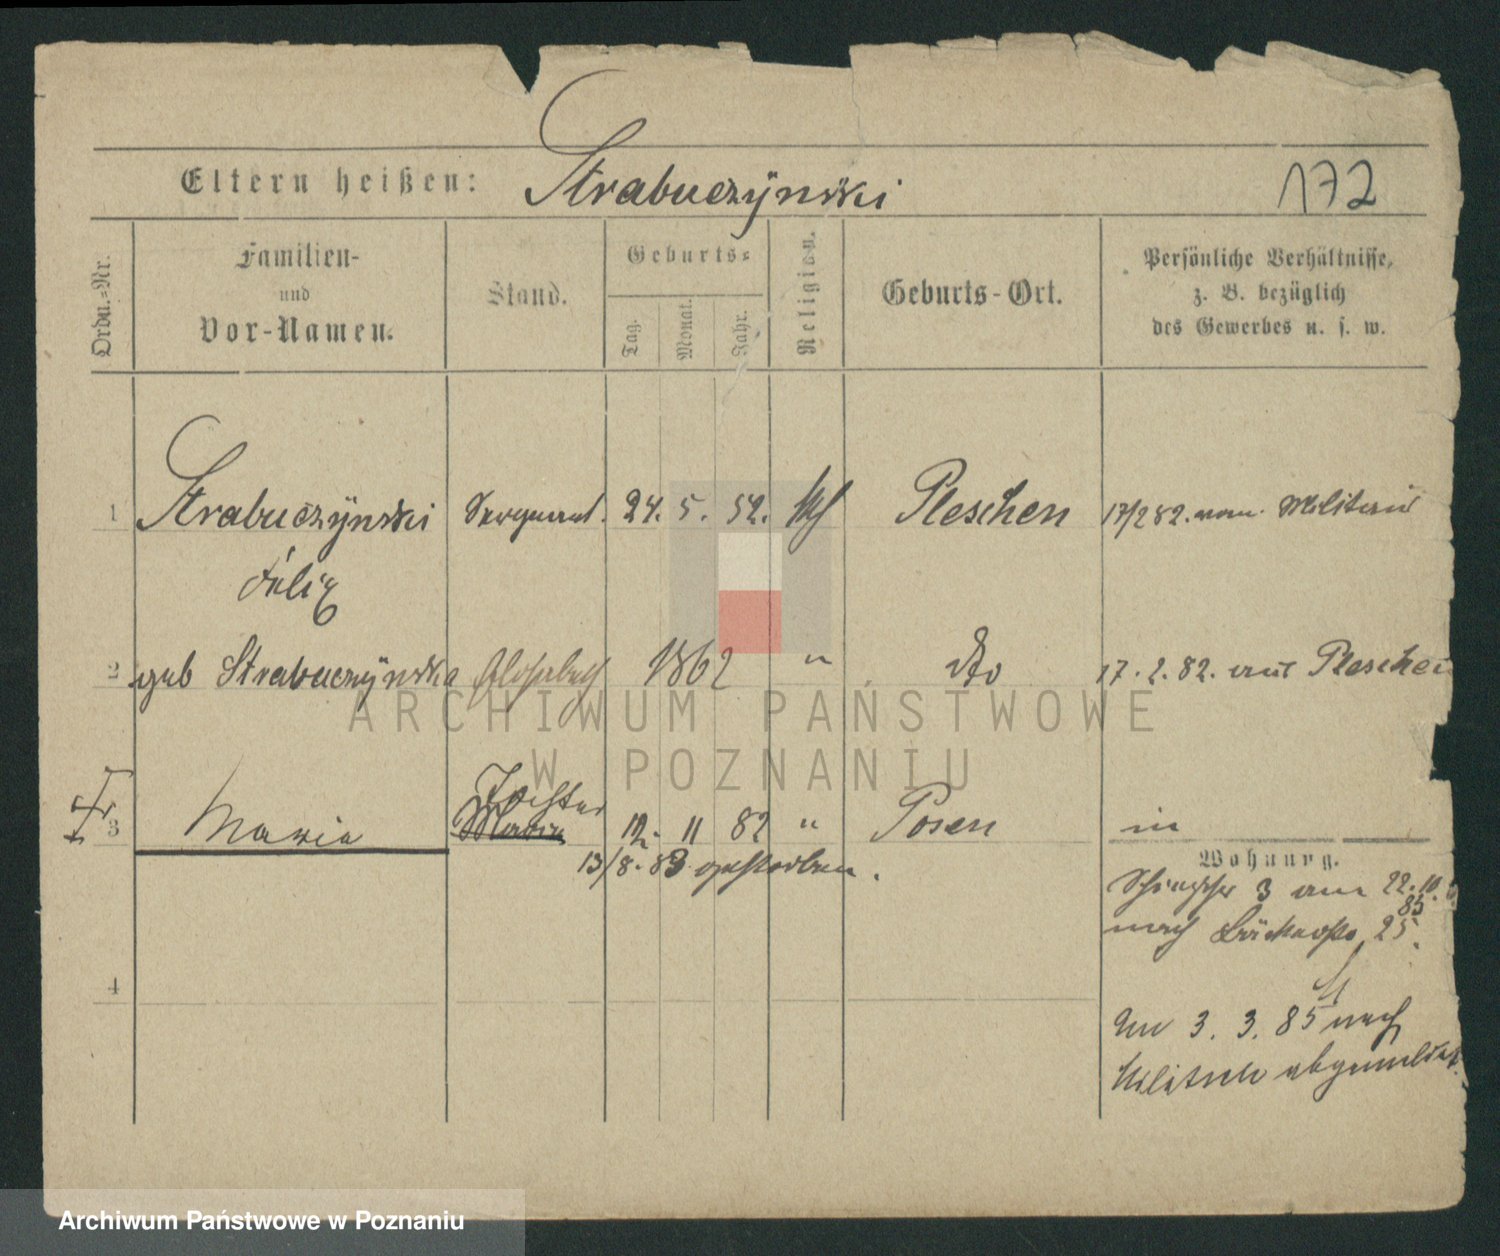 Eltern heißen: Strabuczynski 172
Ordn.-Nr.
Familien-
und
Vor-Namen.
Stand.
Geburts-
Tag.
Monat.
Jahr.
Religion.
Geburts-Ort.
Persönliche Verhältnisse,
z. B. bezüglich
des Gewerbes u. s. w.
1 Strabuczynski Sergeant. 24. 5. 52. kth Pleschen 17/2 82. vom Militair
Felix
2 geb Strabuczynska 1862 " dto 17. 2. 82. aus Pleschen
Tochter
3 Maria Maria 12. 11 82 " Posen in
13/8. 83 gestorben.
Wohnung.
3 am 22. 10.
85
nach 25.
4
Am 3. 3. 85 nach
Militsch abgemeldet.
ARCHIWUM PAŃSTWOWE
W POZNANIU
Archiwum Państwowe w Poznaniu